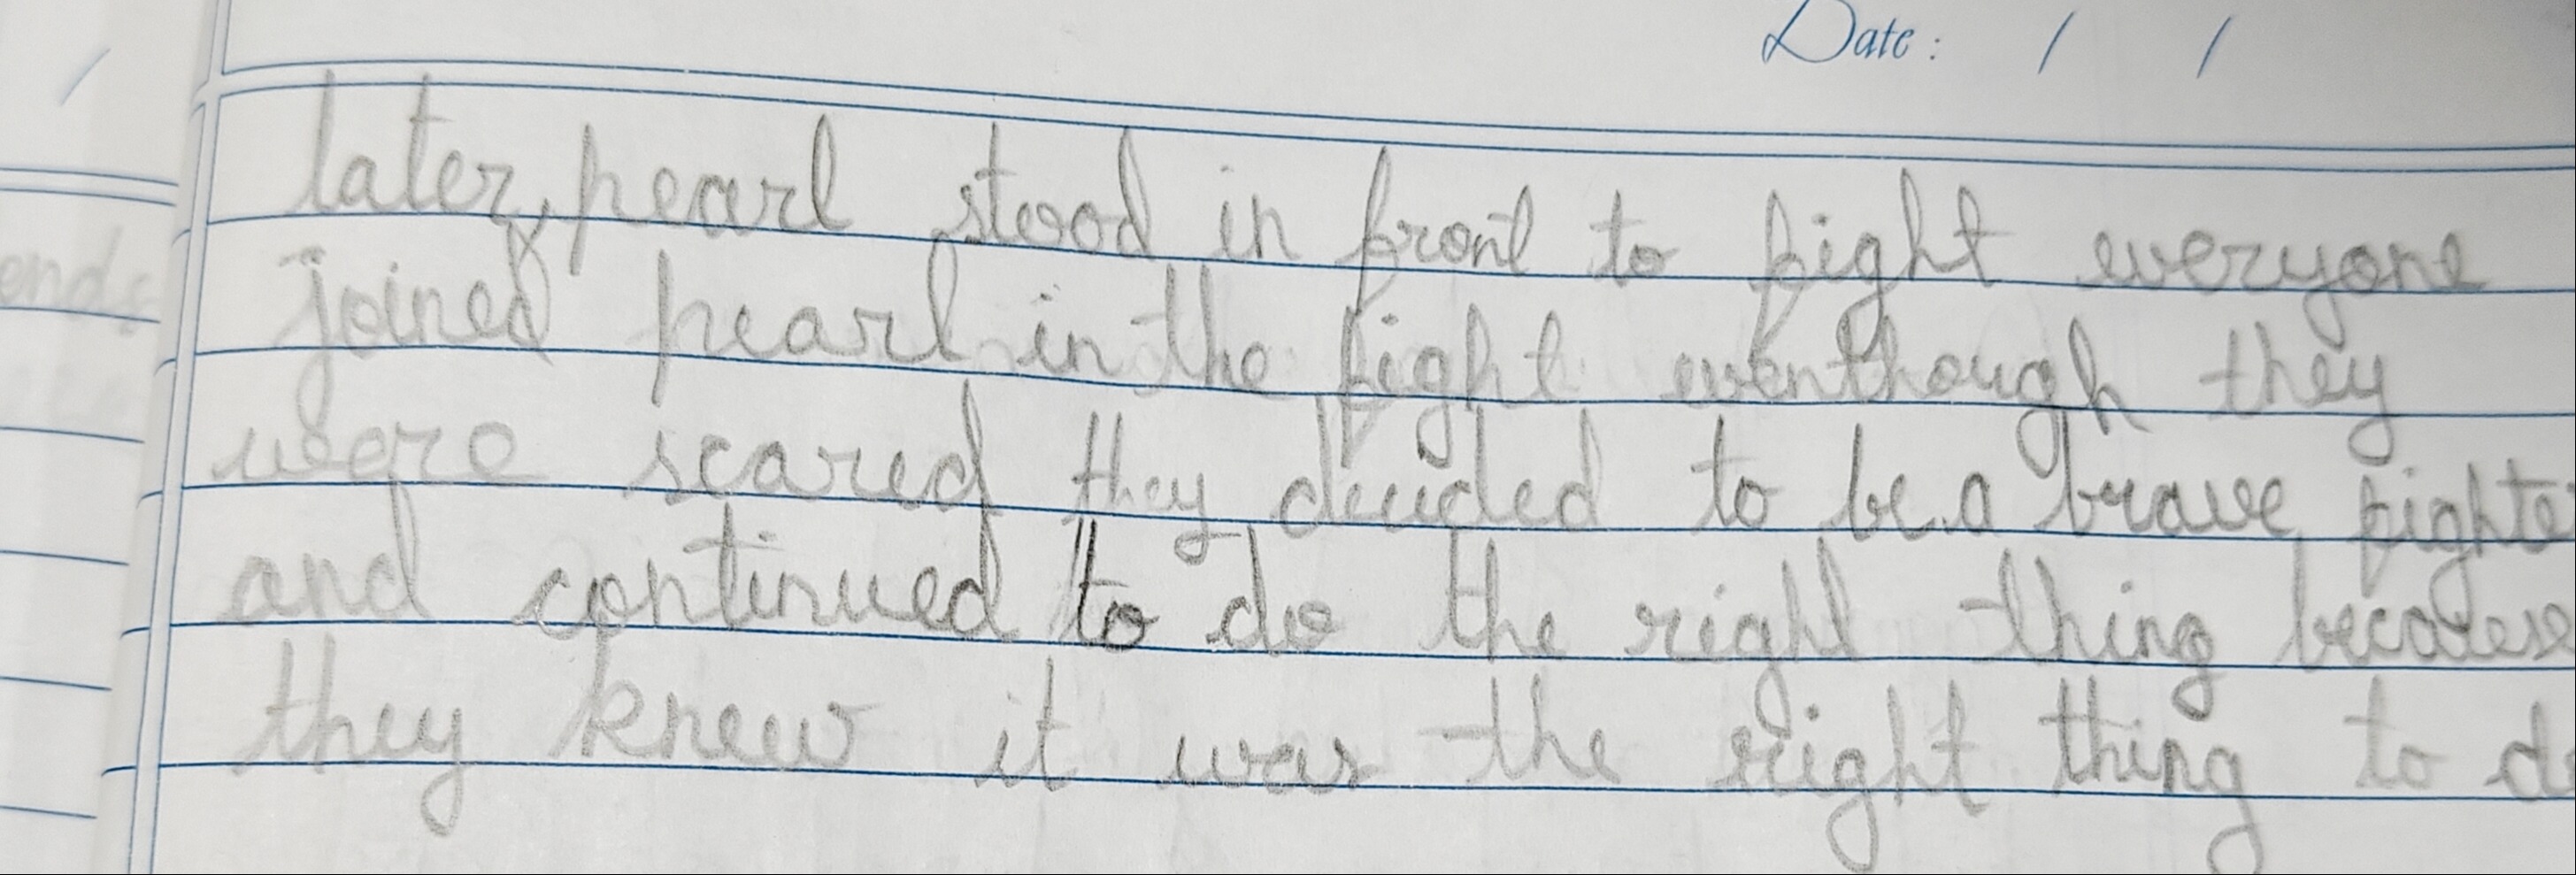 Date: / /
later, pearl stood in front to fight everyone
joined pearl in the fight eventhough they
were scared they decided to be a brave fighte
and continued to do the right thing because
they knew it was the right thing to d
ends